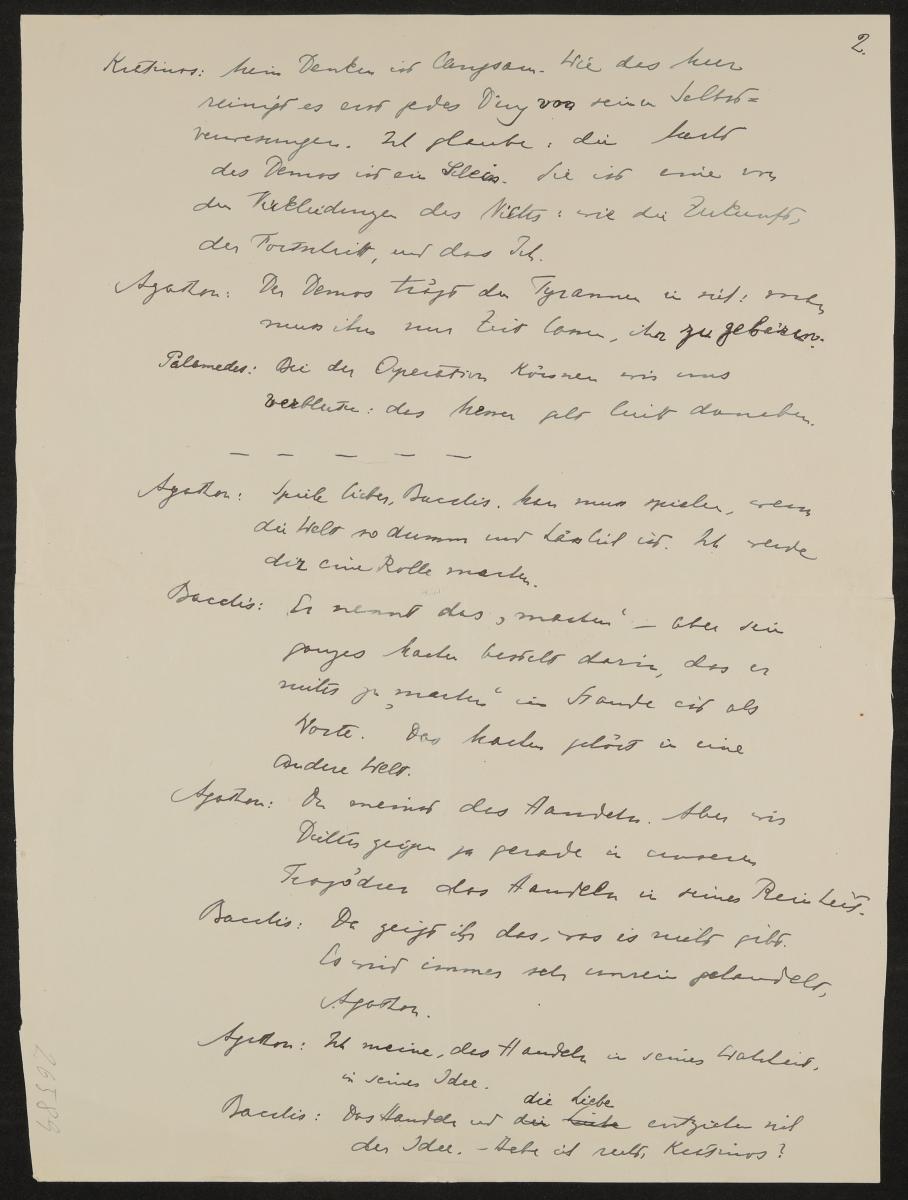 2.
Kratinos: Mein Denken ist langsam. Wie das Meer
reinigt es erst jedes Ding von seinen Selbst=
verwesungen. Ich glaube: die Macht
des Demos ist ein Schein. Sie ist eine von
den Verkleidungen des Nichts: wie die Zukunft,
der Fortschritt, und das Ich.
Agathon: Der Demos trägt den Tyrannen in sich: man
muss ihm nur Zeit lassen, ihn zu gebären.
Palamedes: Bei der Operation können wir uns
verbluten: das Messer geht leicht daneben.
— — — — —
Agathon: Spiele lieber, Bacchis. Man muss spielen, wenn
die Welt so dumm und hässlich ist. Ich werde
dir eine Rolle machen.
Bacchis: Er nennt das „machen" — aber sein
ganzes Machen besteht darin, das er
nichts zu „machen" im Stande ist als
Worte. Das Machen gehört in eine
andere Welt.
Agathon: Du meinst das Handeln. Aber wir
Dichter zeigen ja gerade in unseren
Tragödien das Handeln in seiner Reinheit.
Bacchis: Da zeigt ihr das, was es nicht gibt.
Es wird immer sehr unrein gehandelt,
Agathon.
Agathon: Ich meine, das Handeln in seiner Wahrheit,
in seiner Idee.
die Liebe
Bacchis: Das Handeln und die Liebe entziehen sich
der Idee. – Habe ich recht, Kratinos?
26589